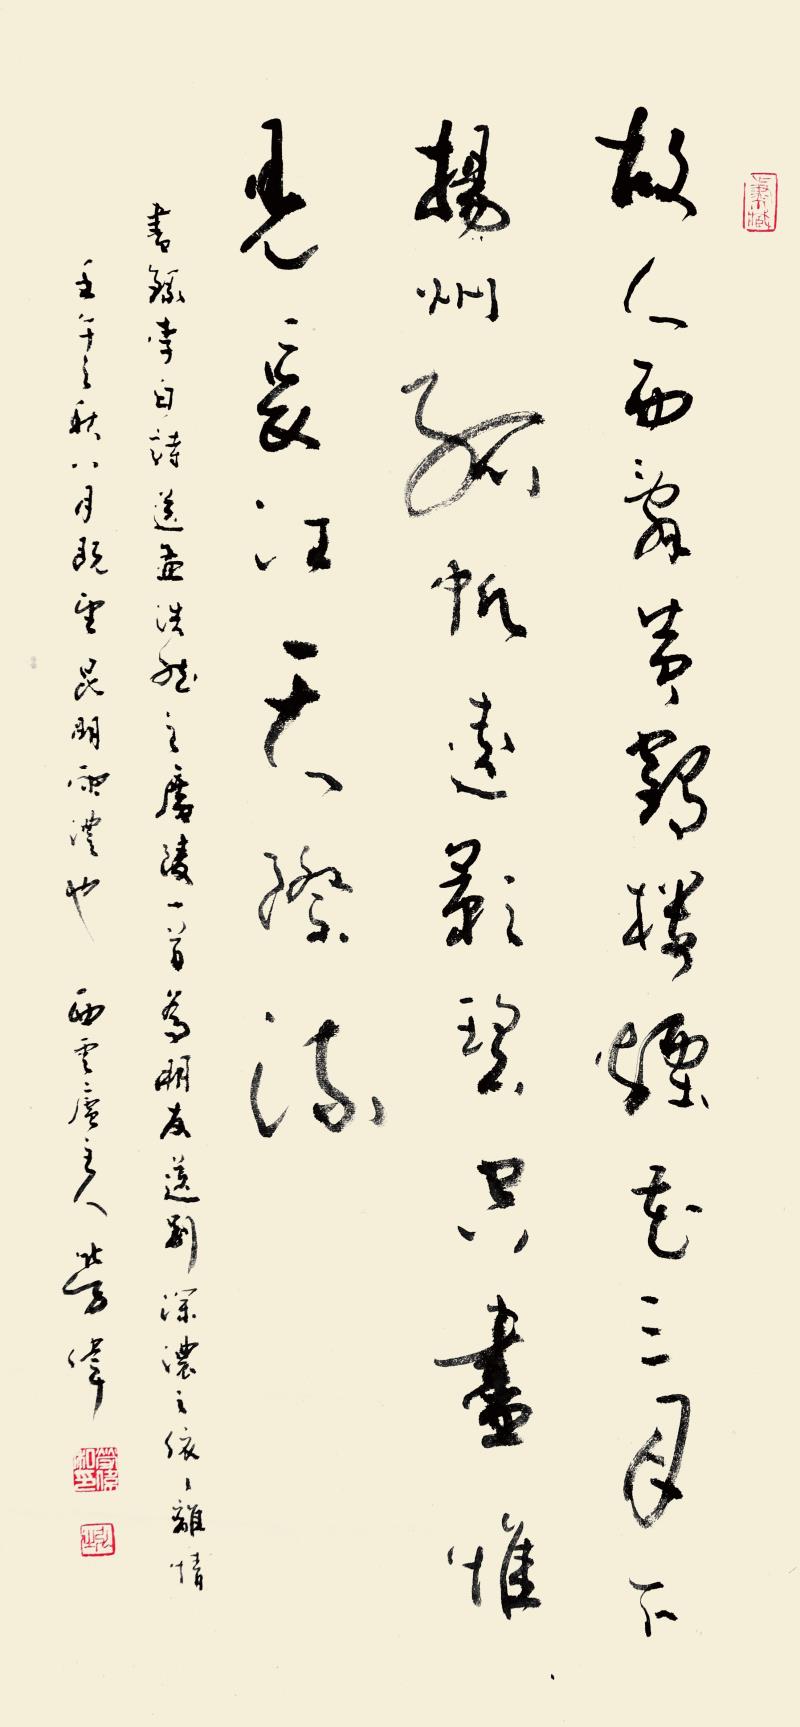 故人西辭黄鶴樓煙花三月下
揚州孤帆遠影碧空盡惟
見長江天際流
書錄李白詩送孟浩然之廣陵一首為朋友送別深濃之依依離情
壬午之秋八月既望昆明雨濃也 西雲廬主人 勞偉